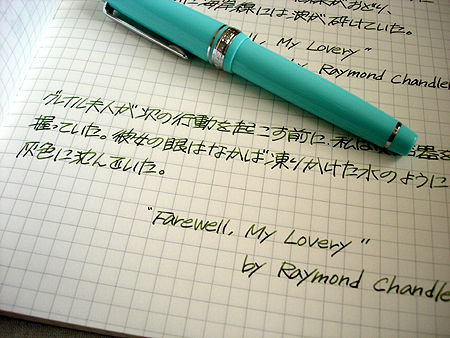 海岸線には波が砕けていた。
My Lovery"
by Raymond Chandler
グレイル夫人が次の行動を起こす前に、私は
握っていた。彼女の眼はなかば凍りかけた水のように
灰色に んでいた。
"Farewell, My Lovery"
by Raymond Chandle